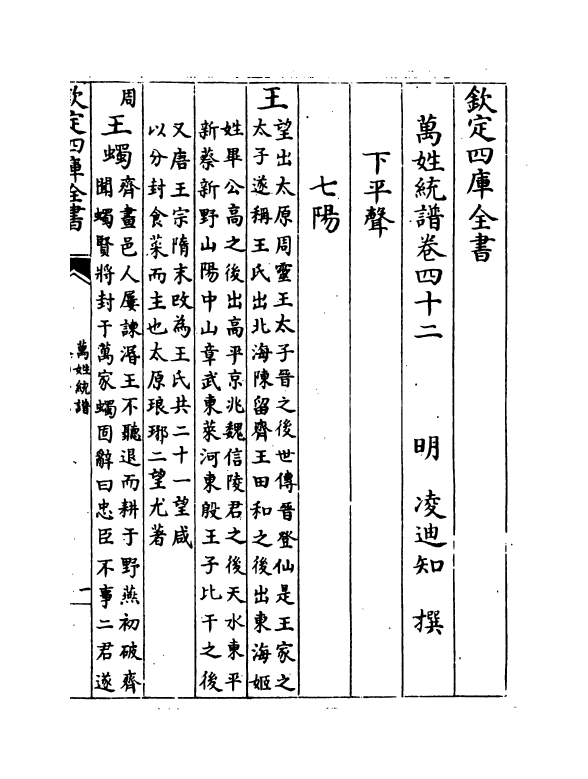 欽定四庫全書
萬姓統譜卷四十二
明 凌迪知 撰
下平聲
七陽
王
望出太原周靈王太子晉之後世傳晉登仙是王家之
太子遂稱王氏出北海陳留齊王田和之後出東海姬
姓畢公高之後出高平京兆魏信陵君之後天水東平
新蔡新野山陽中山章武東萊河東殷王子比干之後
又唐王宗隋末改為王氏共二十一望咸
以分封食菜而主也太原琅琊二望尤著
周
王蠋
齊畫邑人屢諫湣王不聽退而耕于野燕初破齊
聞蠋賢將封于萬家蠋固辭曰忠臣不事二君遂
欽定四庫全書
萬姓統譜
一